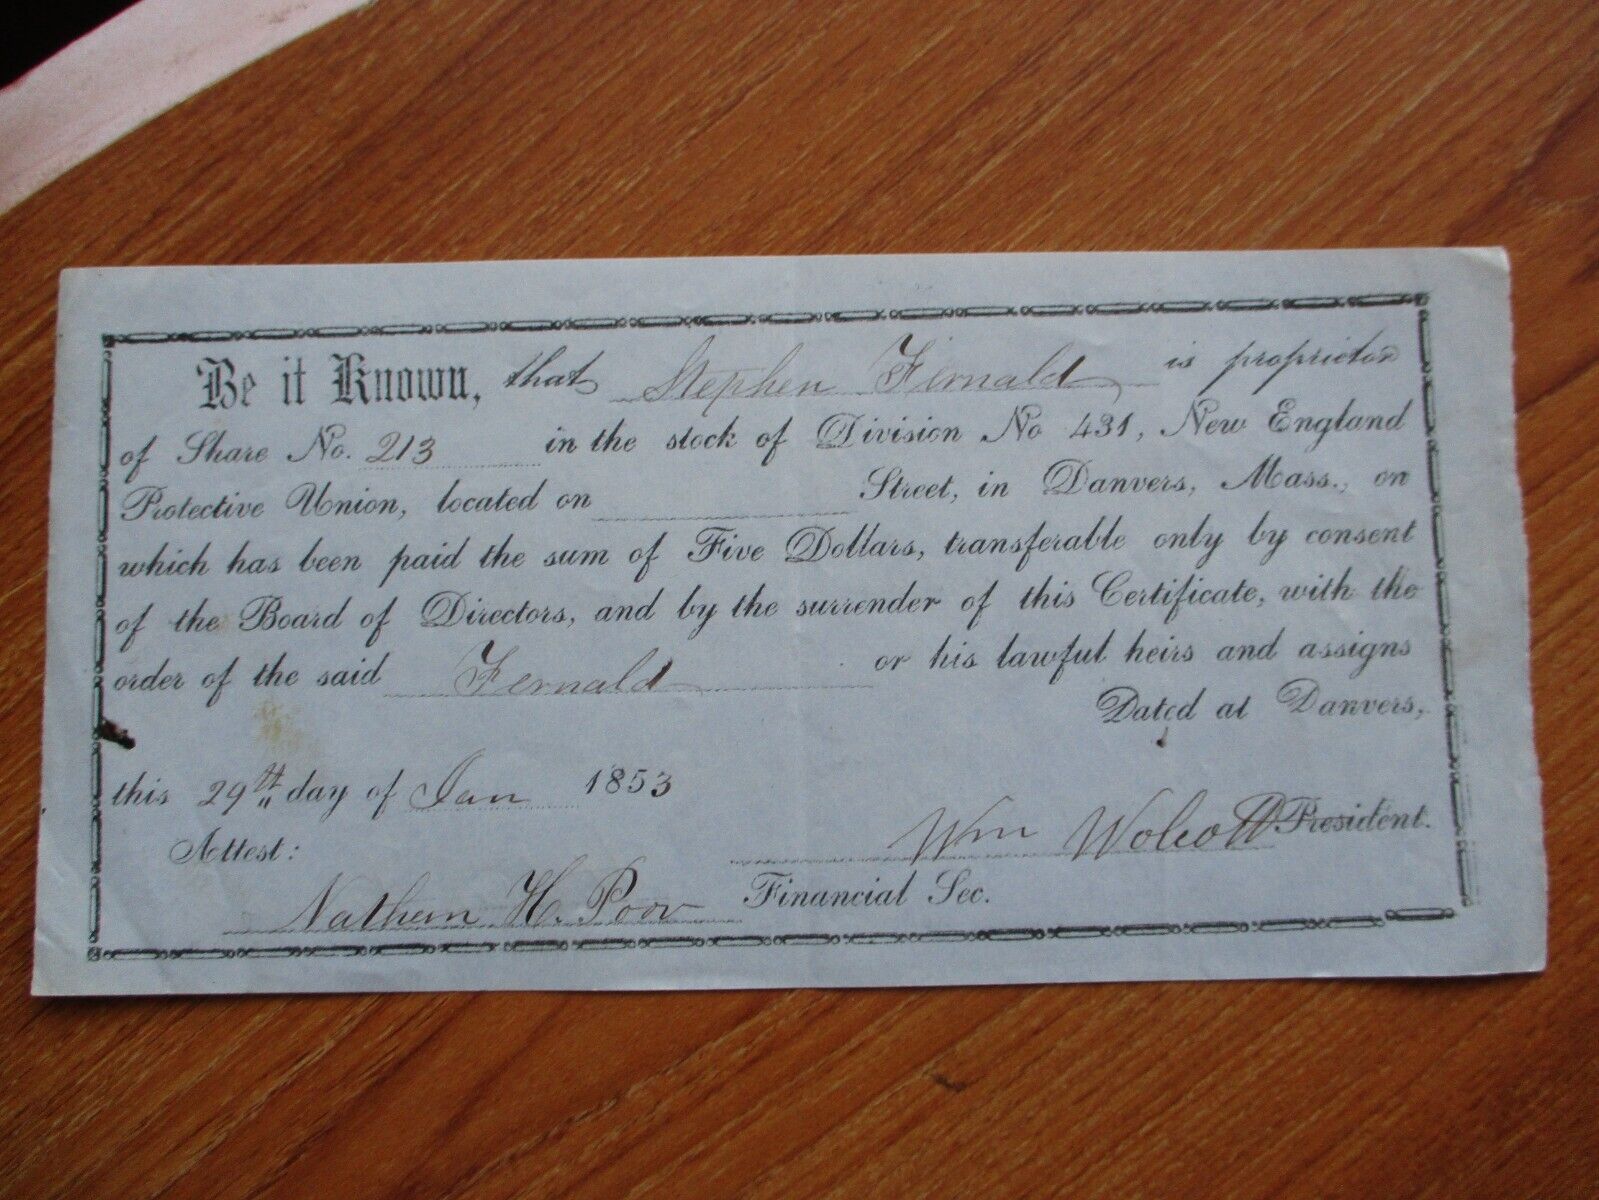 Be it Known, that Stephen Fernald is proprietor
of Share No. 213 in the stock of Division No 431, New England
Protective Union, located on Street, in Danvers, Mass., on
which has been paid the sum of Five Dollars, transferable only by consent
of the Board of Directors, and by the surrender of this Certificate, with the
order of the said Fernald or his lawful heirs and assigns
Dated at Danvers,
this 29th day of Jan 1853
Wm Wolcott President.
Attest:
Nathan H. Poor Financial Sec.